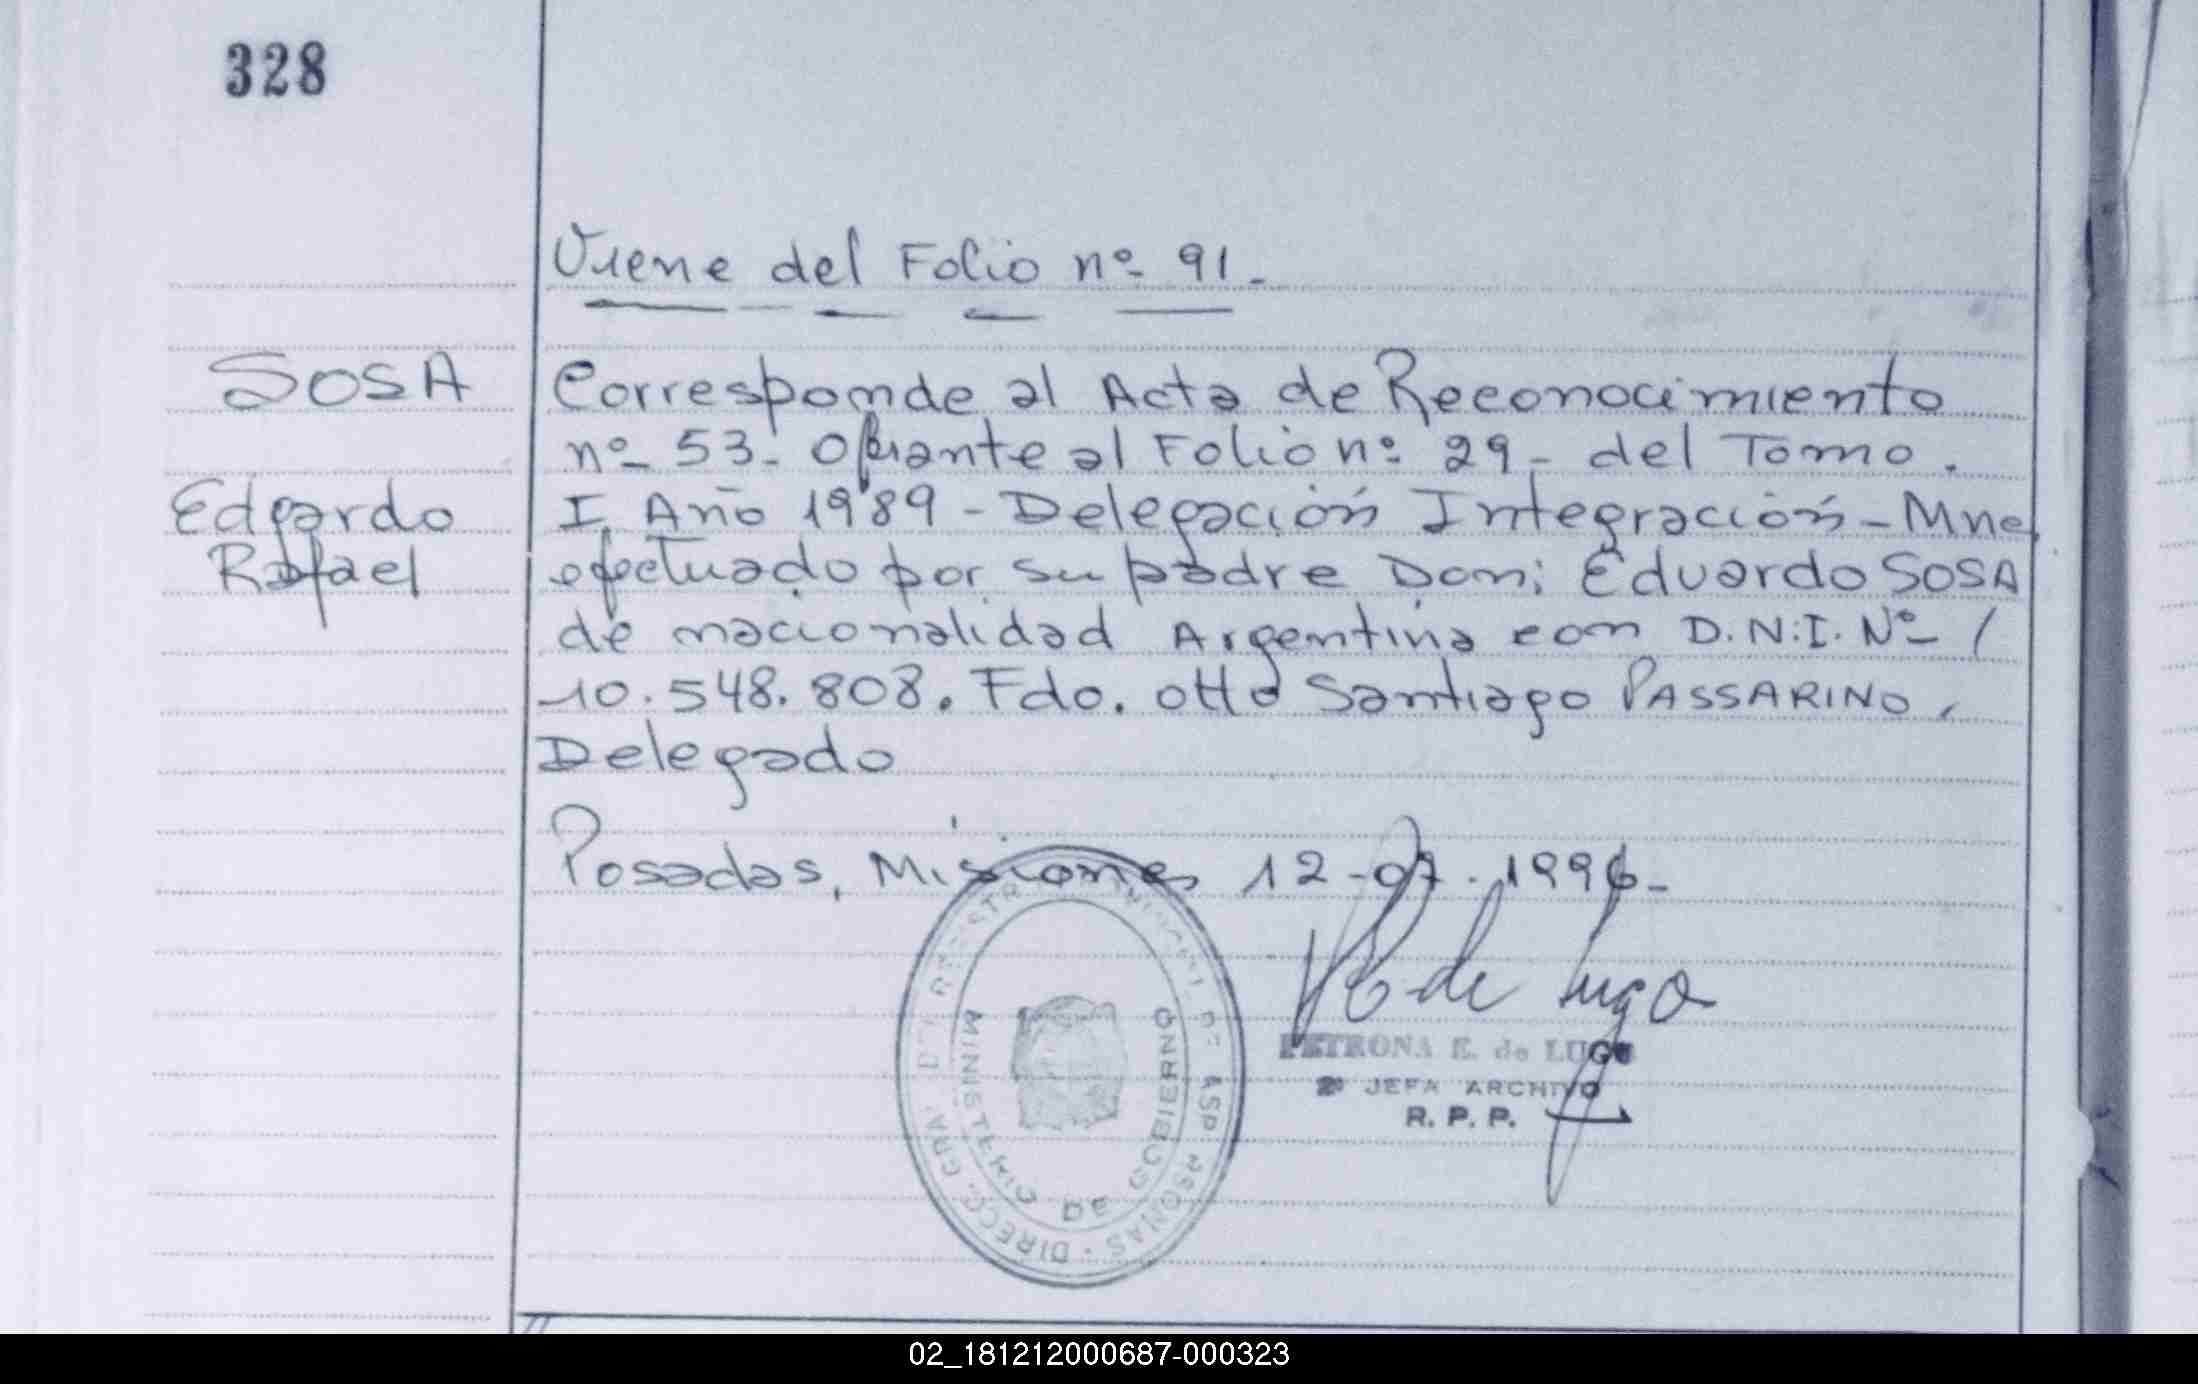 328
Viene del Folio nº 91-
SOSA
Edgardo
Rafael
Corresponde al Acta de Reconocimiento
nº 53- Obrante al Folio nº 29- del Tomo.
I Año 1989 - Delegación Integración - Mnes
efectuado por su padre Don: Eduardo SOSA
de nacionalidad Argentina con D.N.I. Nº /
10.548.808. Fdo. Otto Santiago PASSARINO,
Delegado
Posadas, Misiones 12-07-1996-
P E de Lugo
PETRONA E. de LUGO
2º JEFA ARCHIVO
R. P. P.
MINISTERIO DE GOBIERNO
02_181212000687-000323